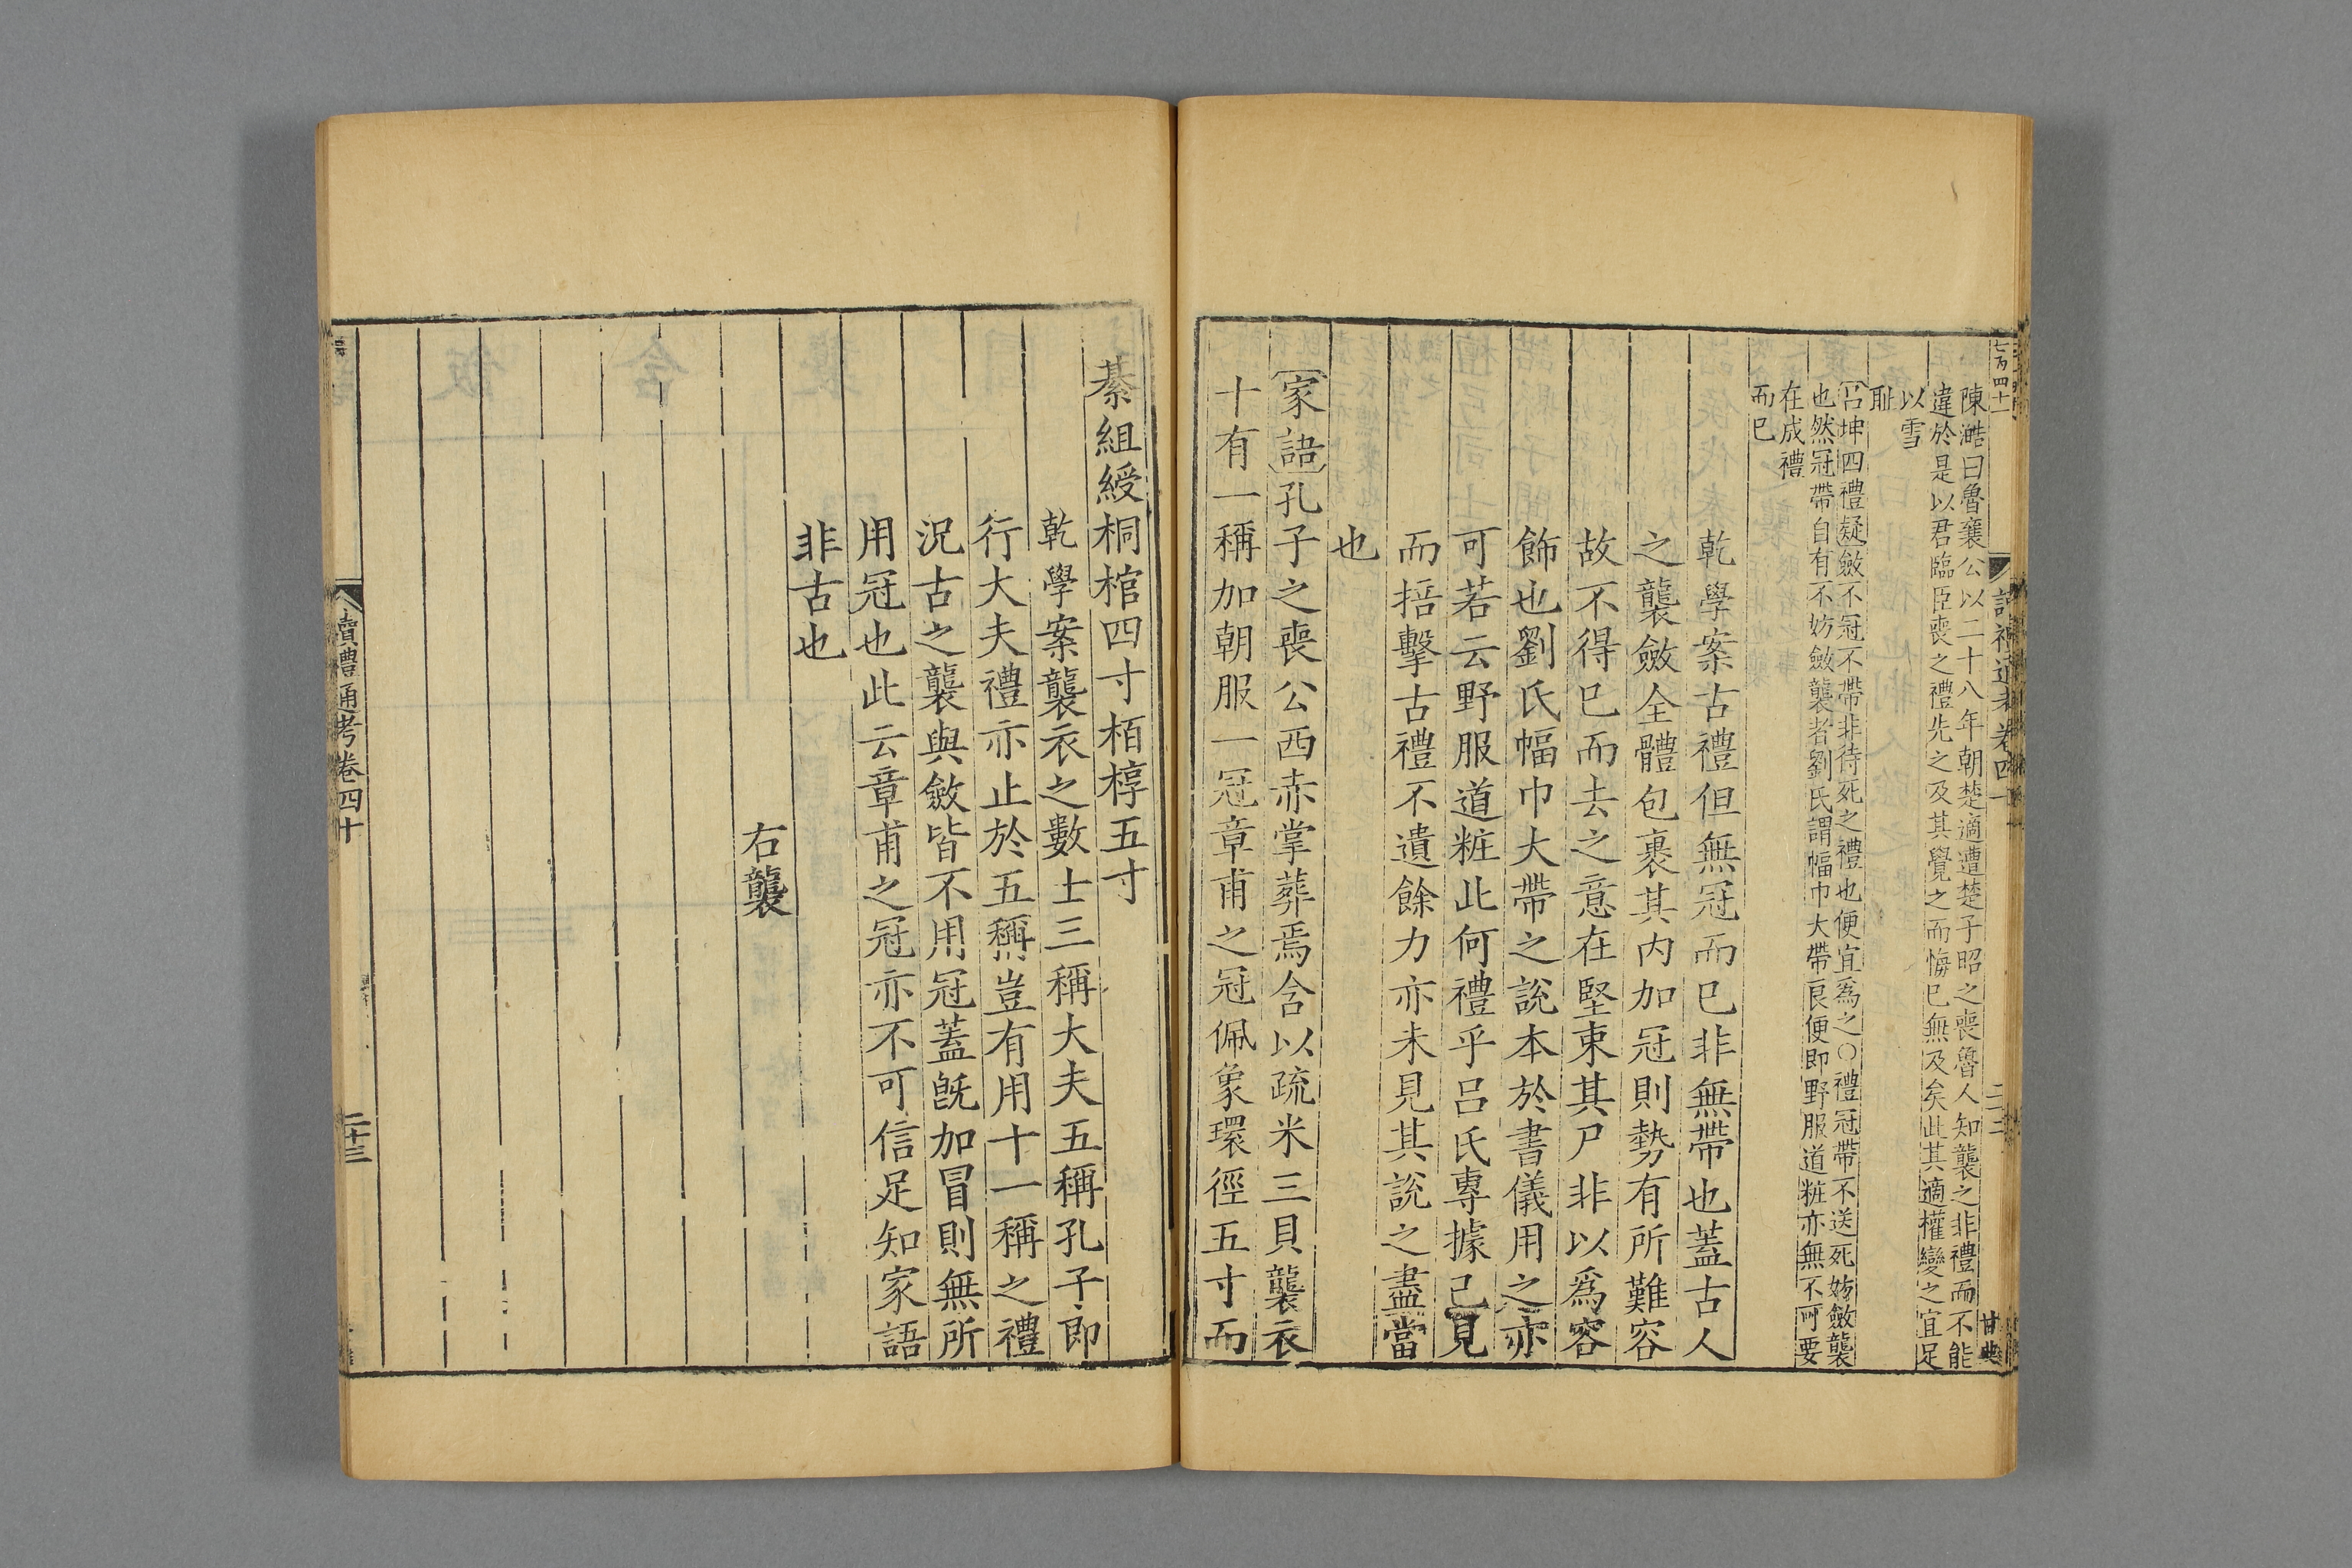 七百四十一
讀禮通考卷四十
二十二
甘典
陳澔曰魯襄公以二十八年朝楚適遭楚子昭之喪魯人知襲之非禮而不能
違於是以君臨臣喪之禮先之及其覺之而悔已無及矣此其適權變之宜足
以雪
恥
呂坤四禮疑斂不冠不帶非待死之禮也便宜爲之○禮冠帶不送死妨斂襲
也然冠帶自有不妨斂襲者劉氏謂幅巾大帶良便即野服道粧亦無不可要
在成禮
而已
乾學案古禮但無冠而已非無帶也蓋古人
之襲斂全體包裹其内加冠則勢有所難容
故不得已而去之意在堅束其尸非以爲容
飾也劉氏幅巾大帶之說本於書儀用之亦
可若云野服道粧此何禮乎呂氏專據己見
而掊擊古禮不遺餘力亦未見其說之盡當
也
家語孔子之喪公西赤掌葬焉含以疏米三貝襲衣
十有一稱加朝服一冠章甫之冠佩象環徑五寸而
綦組綬桐棺四寸栢椁五寸
乾學案襲衣之數士三稱大夫五稱孔子即
行大夫禮亦止於五稱豈有用十一稱之禮
況古之襲與斂皆不用冠蓋旣加冒則無所
用冠也此云章甫之冠亦不可信足知家語
非古也
右襲
讀禮通考卷四十
二十三